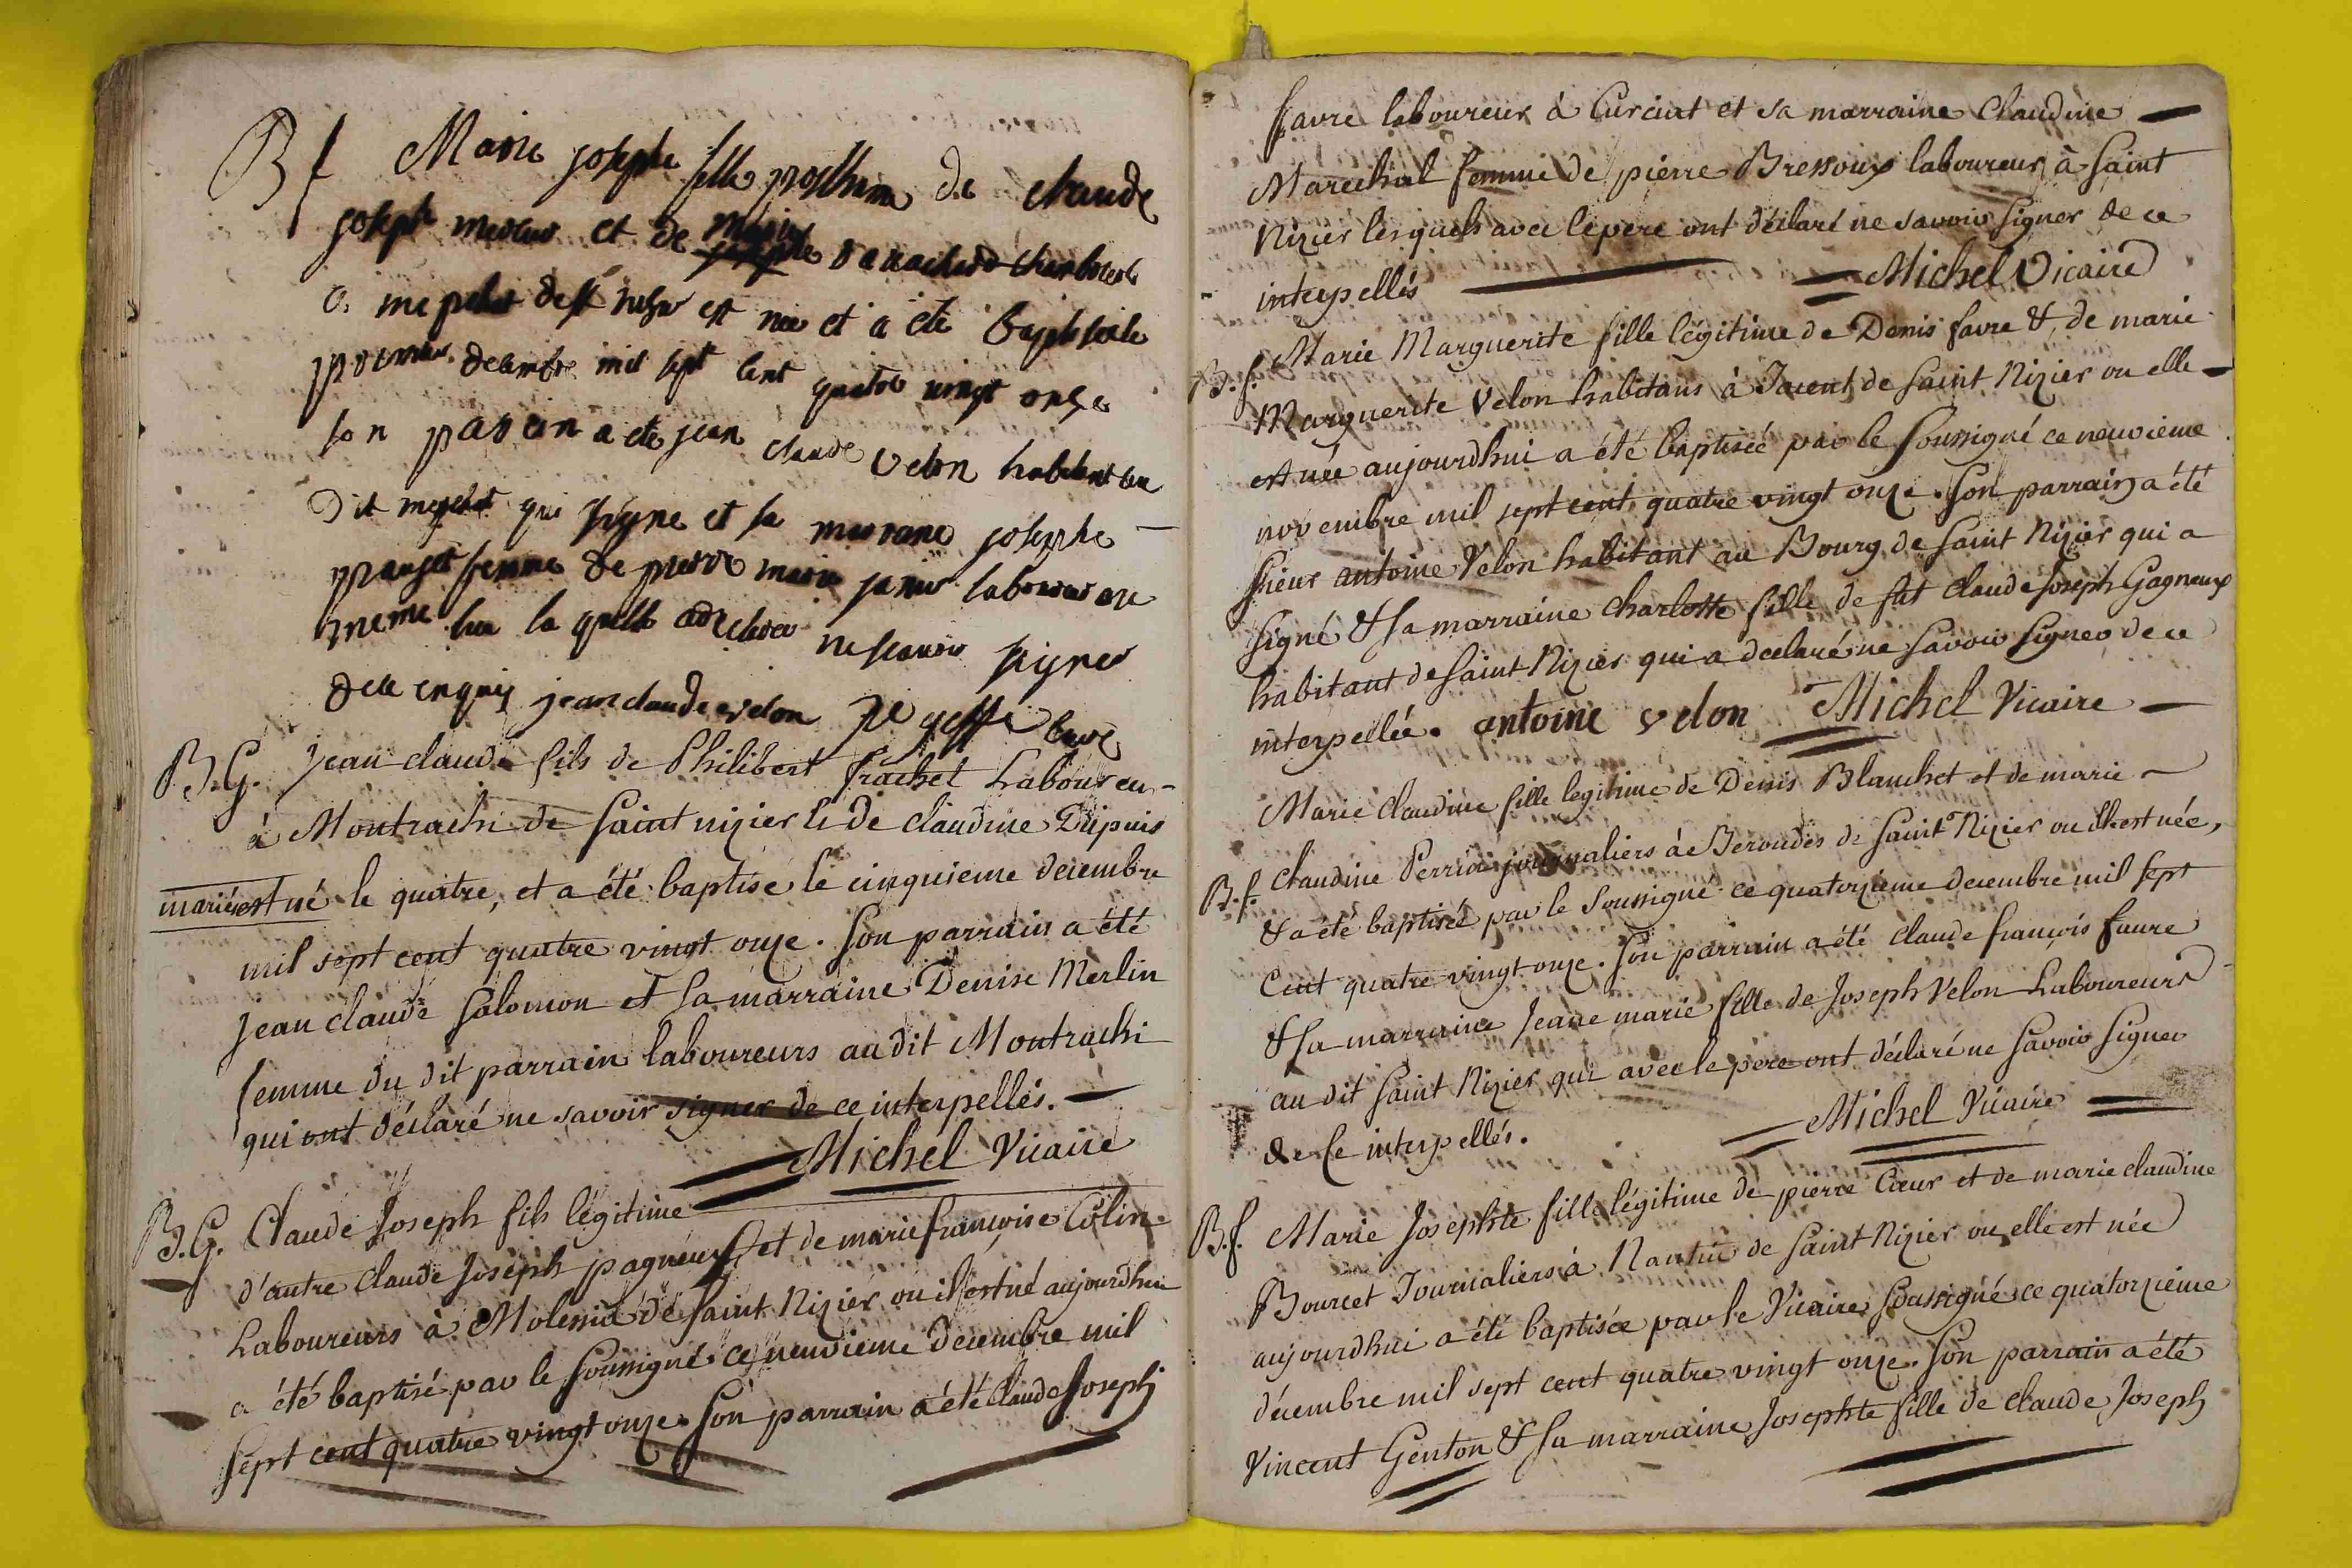 B f Marie josephe fille posthume de claude
joseph et de marie
a est nee et a ete baptisee le
premier decembre mil sept cent quatre vingt onze
son parein a ete jean claude velon habitant au
dit qui signe et sa mareine josephe
femme de pierre marie laboureur au
meme lieu la quelle a declare ne scavoir signer
de ce enquis jean claude velon cure
B.G. Jean claude fils de Philibert frachet Laboureur
à Montrachi de Saint nizier & de claudine Dupuis
mariés est né le quatre, et a été baptisé le cinquieme decembre
mil sept cent quatre vingt onze. Son parrain a été
Jean claude Salomon et sa marraine Denise Merlin
femme du dit parrain laboureurs au dit Montrachi
qui ont déclaré ne savoir signer de ce interpellés.
Michel Vicaire
B.G. Claude Joseph fils légitime
d'autre claude Joseph pagneux et de marie françoise Colin
Laboureurs à de Saint Nizier ou il est né aujourdhui
a été baptisé par le Soussigné ce neuvieme decembre mil
sept cent quatre vingt onze. Son parrain a été Claude Joseph
favre laboureur à Curciat et sa marraine Claudine
Marechal femme de pierre Bressoux laboureur à Saint
Nizier lesquels avec le pere ont déclaré ne savoir signer de ce
interpellés Michel Vicaire
B.f. Marie Marguerite fille légitime de Denis favre & de marie
Marguerite Velon habitans à de Saint Nizier ou elle
est née aujourdhui a été baptisée par le Soussigné ce neuvieme
novembre mil sept cent quatre vingt onze. Son parrain a été
Sieur antoine Velon habitant au Bourg de Saint Nizier qui a
signé & sa marraine charlotte fille de fût claude Joseph Gagneux
habitant de Saint Nizier qui a declaré ne savoir signer de ce
interpellée. antoine velon Michel Vicaire
Marie claudine fille legitime de Denis Blanchet et de marie
B.f. claudine Perrin journaliers à Beroudes de Saint Nizier ou elle est née,
& a été baptisée par le Soussigné ce quatorzieme decembre mil sept
Cent quatre vingt onze. Son parrain a été claude françois faure
& sa marraine Jeane marie fille de Joseph Velon Laboureurs
au dit Saint Nizier qui avec le pere ont déclaré ne savoir signer
de ce interpellés. Michel Vicaire
B.f. Marie Josephte fille légitime de pierre Cœur et de marie claudine
Bourcet Journaliers à de Saint Nizier ou elle est née
aujourdhui a été baptisée par le Vicaire Soussigné ce quatorzieme
décembre mil sept cent quatre vingt onze. Son parrain a été
Vincent Genton & sa marraine Josephte fille de claude Joseph